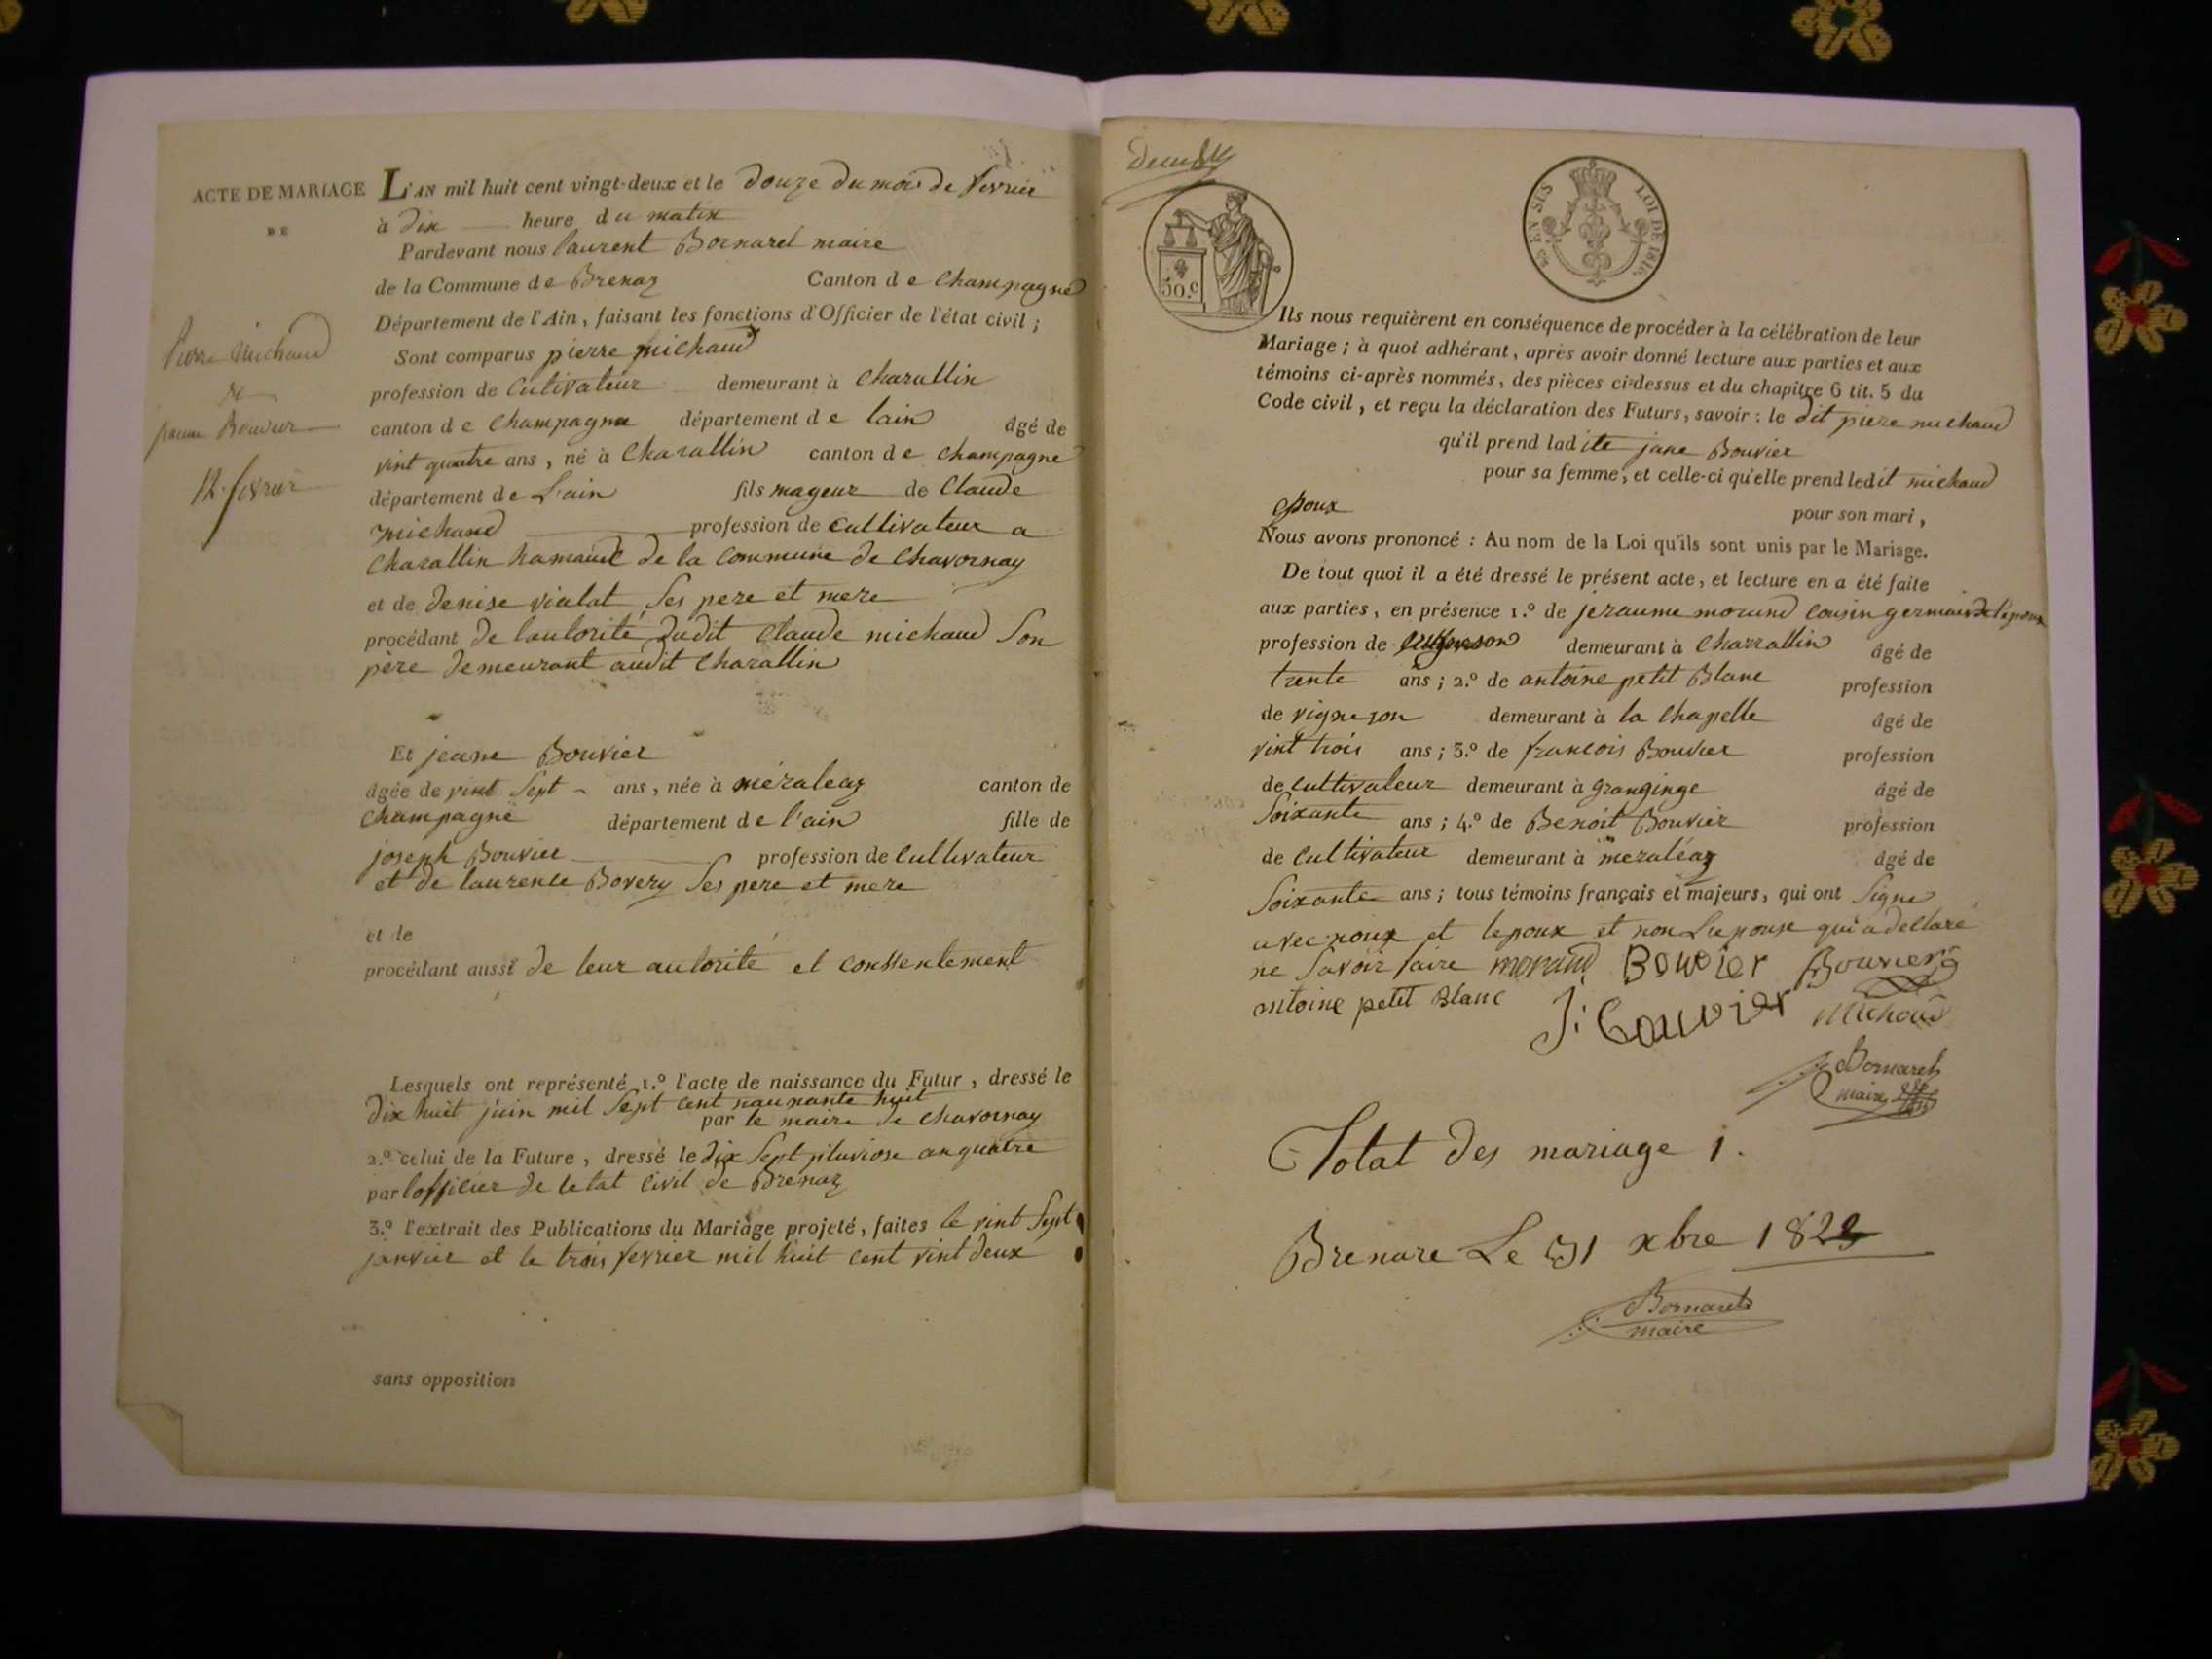 ACTE DE MARIAGE
DE
Pierre Michaud
&
jeanne Bouvier
12 fevrier
L'AN mil huit cent vingt-deux et le douze du mois de fevrier
à dix heure du matin
Pardevant nous laurent Bornaret maire
de la Commune de Brenaz Canton de Champagne
Département de l'Ain, faisant les fonctions d'Officier de l'état civil ;
Sont comparus pierre michaud
profession de Cultivateur demeurant à Charallin
canton de Champagne département de lain âgé de
vint quatre ans, né à Charallin canton de champagne
département de L'ain fils mageur de Claude
michaud profession de cultivateur a
Charallin hamaud de la commune de Chavornay
et de denise vialat ses pere et mere
procédant de lautorité dudit Claude michaud son
père demeurant audit Charallin
Et jeane Bouvier
âgée de vint sept ans, née à méraleaz canton de
Champagne département de l'ain fille de
joseph Bouvier profession de Cultivateur
et de laurence Bovery ses pere et mere
et de
procédant aussi de leur autorité et conssentement
Lesquels ont représenté 1.º l'acte de naissance du Futur, dressé le
dix huit juin mil sept cent naunante huit
par le maire de chavornay
2.º celui de la Future, dressé le dix sept pluviose an quatre
par lofficier de letat Civil de Brenaz
3.º l'extrait des Publications du Mariage projeté, faites le vint sept
janvier et le trois fevrier mil huit cent vint deux
sans opposition
50.c
EN SUS
LOI DE 1816.
Ils nous requièrent en conséquence de procéder à la célébration de leur
Mariage ; à quoi adhérant, après avoir donné lecture aux parties et aux
témoins ci-après nommés, des pièces ci-dessus et du chapitre 6 tit. 5 du
Code civil, et reçu la déclaration des Futurs, savoir : le dit piere michaud
qu'il prend ladite jane Bouvier
pour sa femme, et celle-ci qu'elle prend ledit michaud
epoux pour son mari,
Nous avons prononcé : Au nom de la Loi qu'ils sont unis par le Mariage.
De tout quoi il a été dressé le présent acte, et lecture en a été faite
aux parties, en présence 1.º de jeraume moraud cousin germain de lépoux
profession de demeurant à Charrallin âgé de
trente ans ; 2.º de antoine petit Blanc profession
de vigneron demeurant à la Chapelle âgé de
vint trois ans ; 3.º de francois Bouvier profession
de cultivateur demeurant à granginge âgé de
soixante ans ; 4.º de Benoit Bouvier profession
de Cultivateur demeurant à meraléaz âgé de
soixante ans ; tous témoins français et majeurs, qui ont signe
avec nous et lepoux et non Lepouse qui a declaré
ne savoir faire moraud Bouvier Bouvier
antoine petit Blanc J: Bouvier Michaud
Bornaret
maire
Total des mariage 1.
Brenare Le 31 xbre 1822
Bornaret
maire